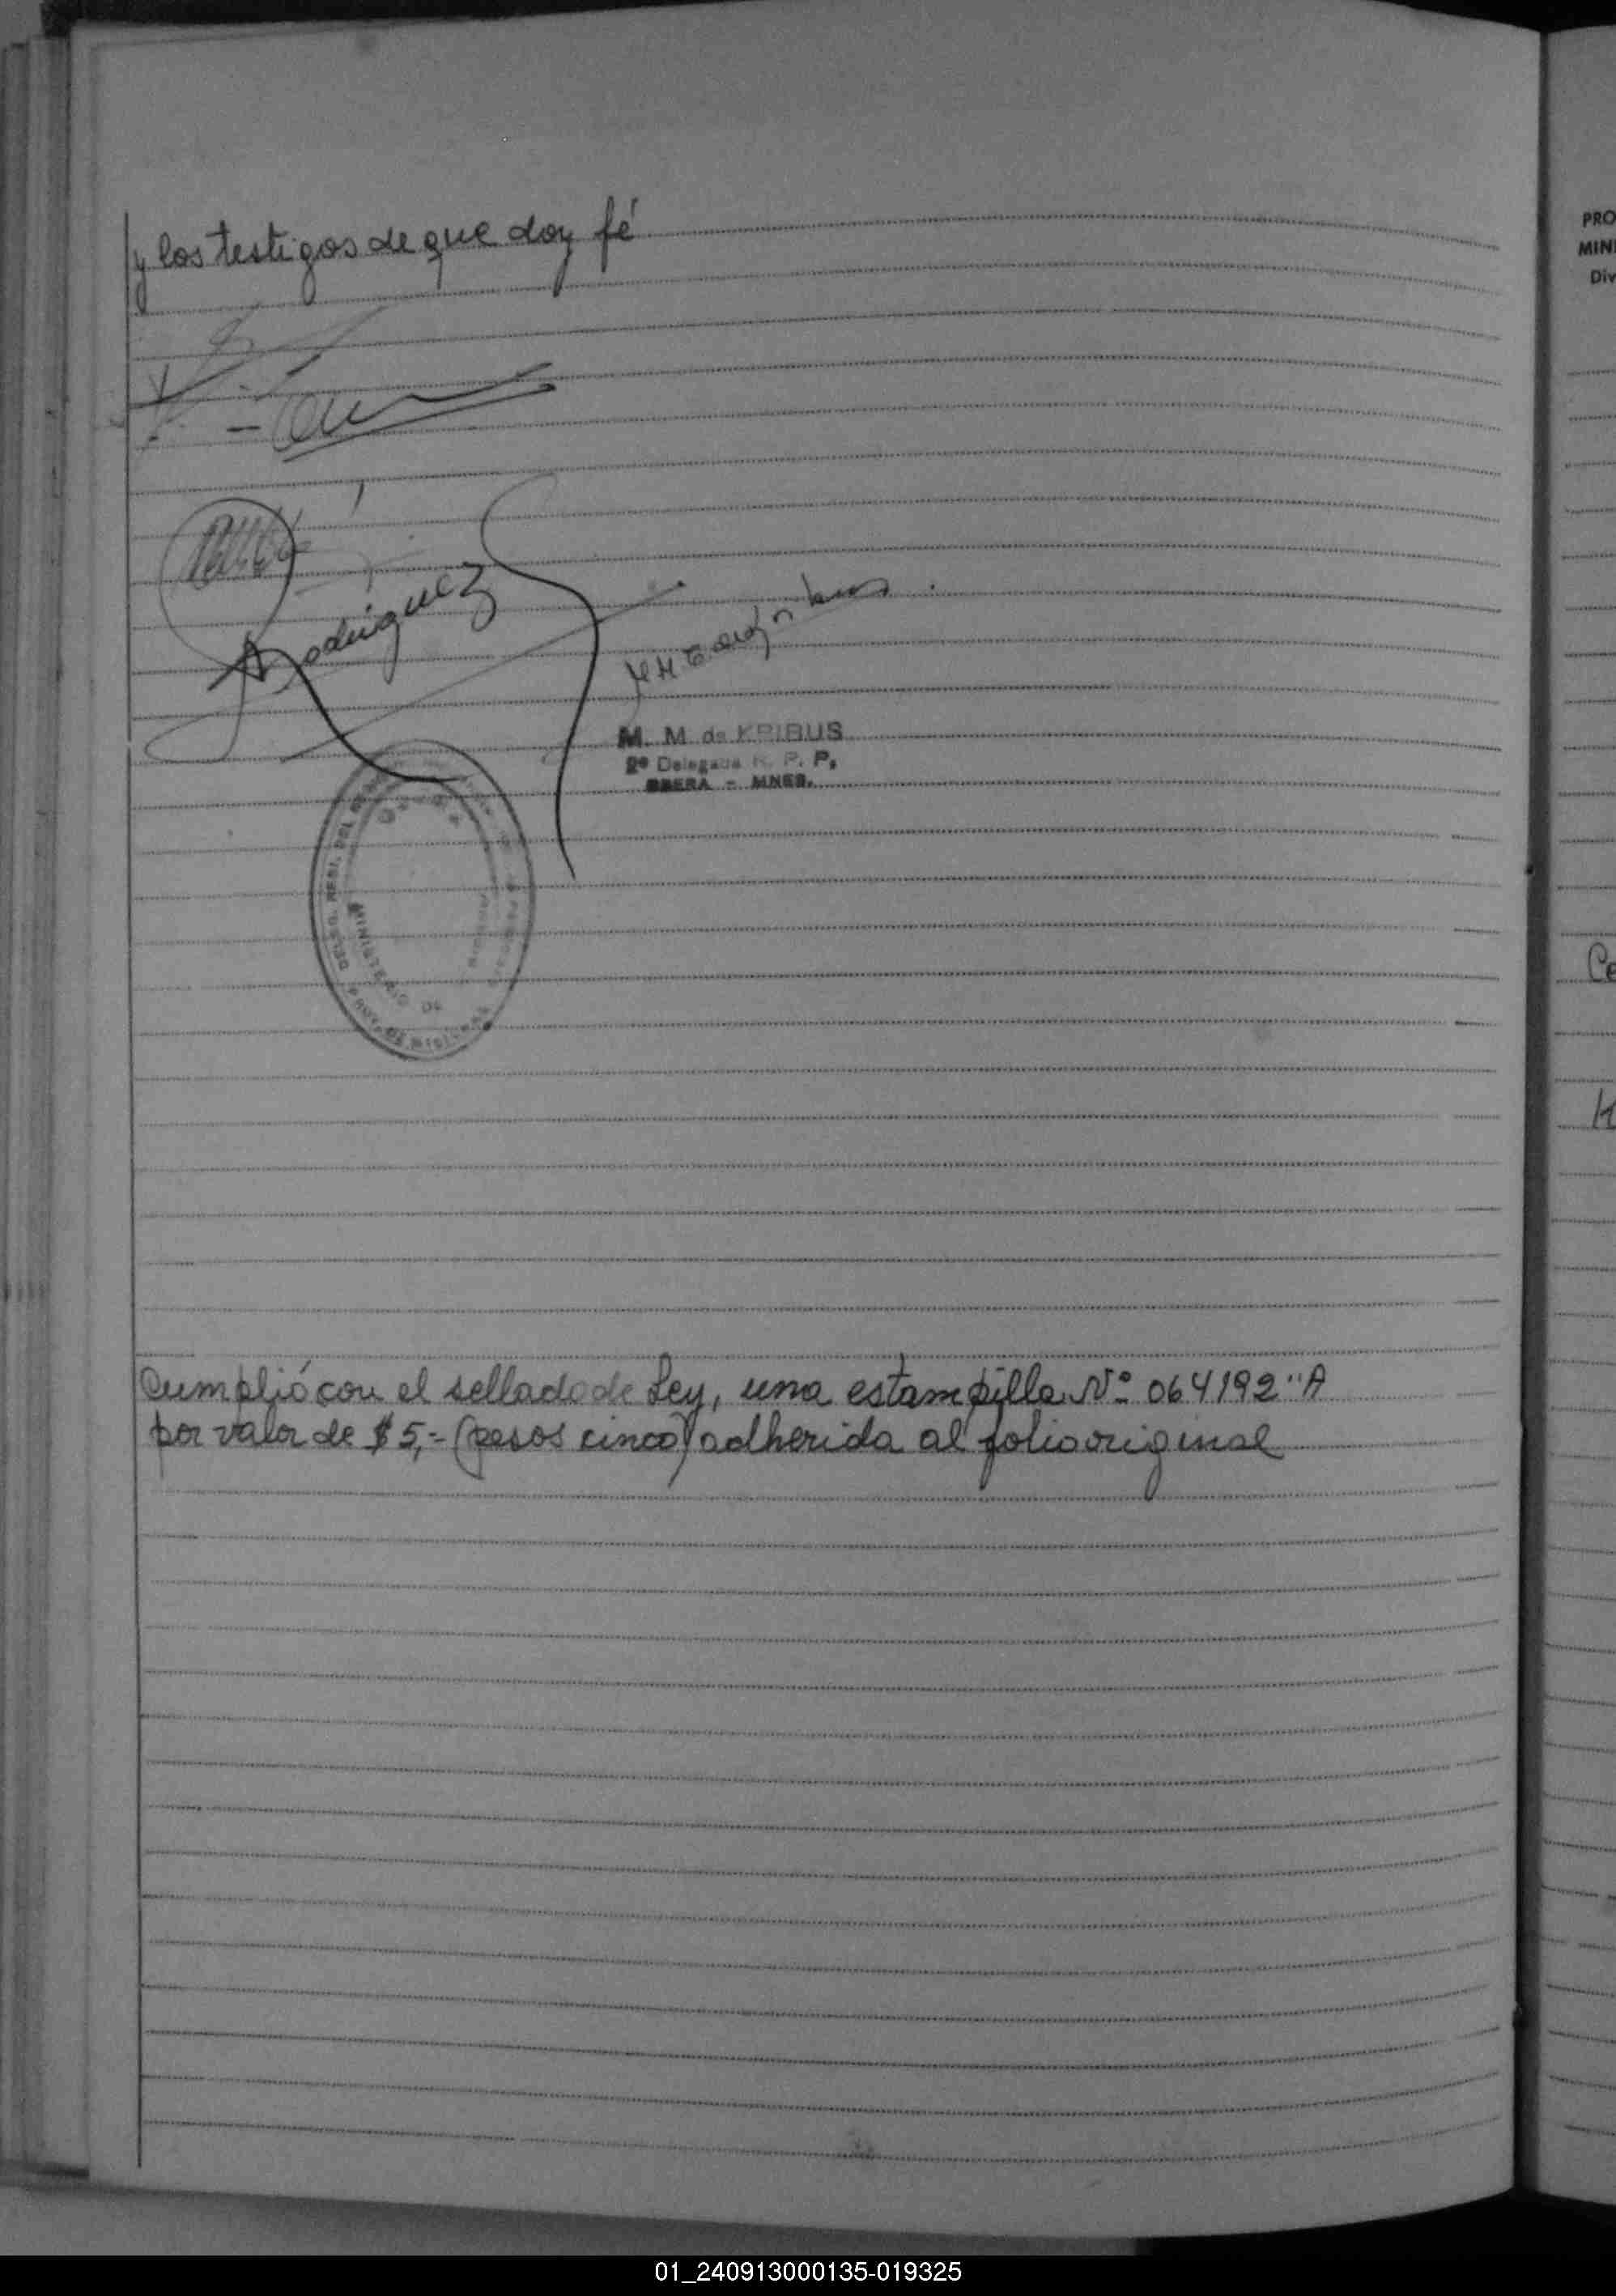 y los testigos de que doy fé
Rodriguez
M. M. de KRIBUS
2º Delegada R. P. P.
OBERA - MNES.
MINISTERIO DE
PROV. DE MISIONES
Cumplió con el sellado de Ley, una estampilla Nº 064192 "A
por valor de $ 5,- (pesos cinco) adherida al folio original
PRO
MINI
Div
Ce
01_240913000135-019325